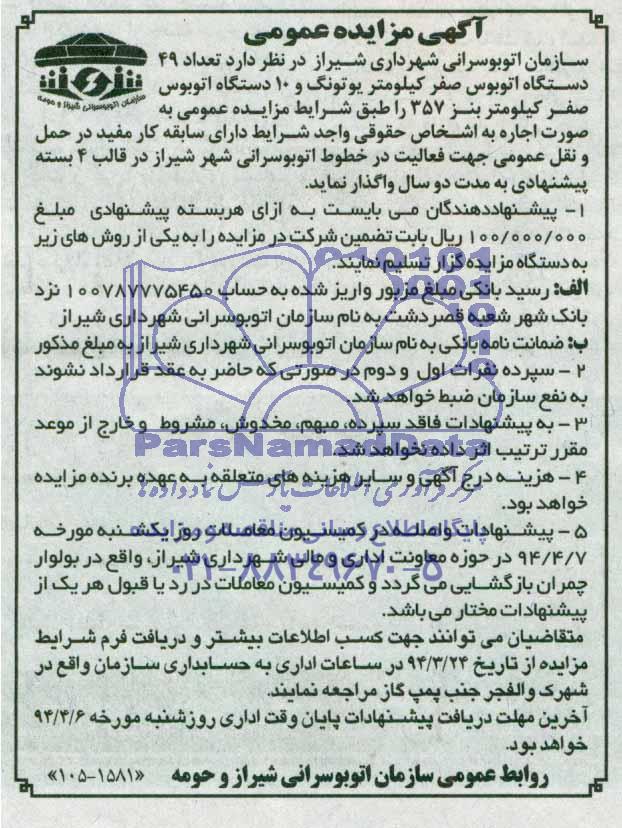 آگهی مزایده عمومی
سازمان اتوبوسرانی شیراز و حومه
سازمان اتوبوسرانی شهرداری شیراز در نظر دارد تعداد ۴۹
دستگاه اتوبوس صفر کیلومتر یوتونگ و ۱۰ دستگاه اتوبوس
صفر کیلومتر بنز ۳۵۷ را طبق شرایط مزایده عمومی به
صورت اجاره به اشخاص حقوقی واجد شرایط دارای سابقه کار مفید در حمل
و نقل عمومی جهت فعالیت در خطوط اتوبوسرانی شهر شیراز در قالب ۴ بسته
پیشنهادی به مدت دو سال واگذار نماید.
۱- پیشنهاددهندگان می بایست به ازای هربسته پیشنهادی مبلغ
۱۰۰/۰۰۰/۰۰۰ ریال بابت تضمین شرکت در مزایده را به یکی از روش های زیر
به دستگاه مزایده گزار تسلیم نمایند.
الف: رسید بانکی مبلغ مزبور واریز شده به حساب ۱۰۰۷۸۷۷۷۵۴۵۰ نزد
بانک شهر شعبه قصردشت به نام سازمان اتوبوسرانی شهرداری شیراز
ب: ضمانت نامه بانکی به نام سازمان اتوبوسرانی شهرداری شیراز به مبلغ مذکور
۲- سپرده نفرات اول و دوم در صورتی که حاضر به عقد قرارداد نشوند
به نفع سازمان ضبط خواهد شد.
۳- به پیشنهادات فاقد سپرده، مبهم، مخدوش، مشروط و خارج از موعد
مقرر ترتیب اثر داده نخواهد شد.
ParsNamadData
۴- هزینه درج آگهی و سایر هزینه های متعلقه به عهده برنده مزایده
خواهد بود.
گردآوری اطلاعات پارس نماد داده ها
۵- پیشنهادات واصله در کمیسیون معاملات روز یکشنبه مورخه
پایگاه اطلاع رسانی مناقصه و مزایده
۹۴/۴/۷ در حوزه معاونت اداری و مالی شهرداری شیراز، واقع در بولوار
۰۲۱-۸۸۳۴۹۶۷۰-۵
چمران بازگشایی می گردد و کمیسیون معاملات در رد یا قبول هر یک از
پیشنهادات مختار می باشد.
متقاضیان می توانند جهت کسب اطلاعات بیشتر و دریافت فرم شرایط
مزایده از تاریخ ۹۴/۳/۲۴ در ساعات اداری به حسابداری سازمان واقع در
شهرک والفجر جنب پمپ گاز مراجعه نمایند.
آخرین مهلت دریافت پیشنهادات پایان وقت اداری روزشنبه مورخه ۹۴/۴/۶
خواهد بود.
روابط عمومی سازمان اتوبوسرانی شیراز و حومه
«۱۰۵-۱۵۸۱»